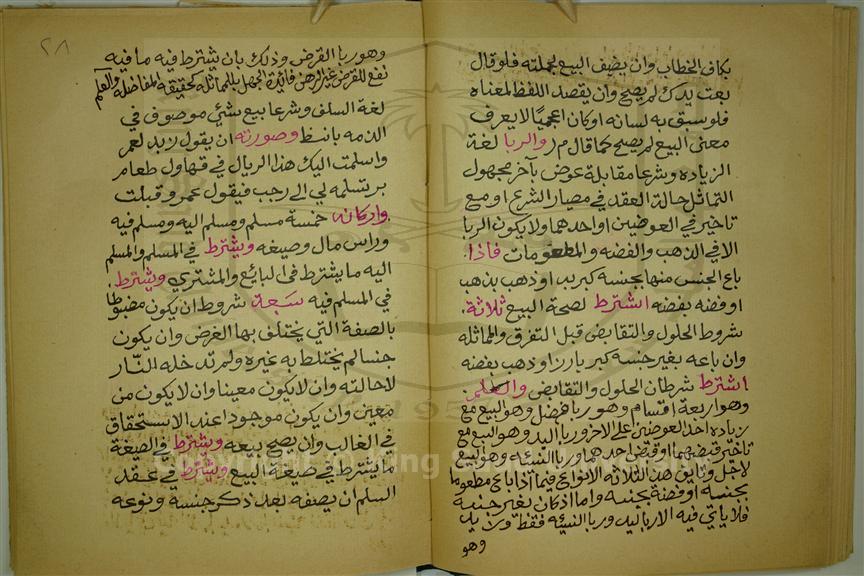 بكاف الخطاب وان يضيف البيع لجملته فلو قال
بعت يدك لم يصح وان يقصد اللفظ لمعناه
فلو سبق به لسانه او كان اعجميا لا يعرف
معنى البيع لم يصح كما قال م ر والربا لغة
الزياده وشرعا مقابلة عوض بآخر مجهول
التماثل حالة العقد في معيار الشرع او مع
تاخير في العوضين او احدهما ولا يكون الربا
الا في الذهب والفضه والمطعومات فاذا
باع الجنس منها بجنسه كبر ببر او ذهب بذهب
او فضه بفضه اشترط لصحة البيع ثلاثة
شروط الحلول والتقابض قبل التفرق والمماثله
وان باعه بغير جنسه كبر بارز او ذهب بفضه
اشترط شرطان الحلول والتقابض والعلم
وهو اربعة اقسام وهو ربا فضل وهو البيع مع
زياده احد العوضين على الاخر وربا اليد وهو البيع مع
تاخير قبضهما او قبض احدهما وربا النسيئه وهو البيع
لاجل وتاتي هذه الثلاثه الانواع فيما اذا باع مطعوما
بجنسه او فضة بجنسه واما اذ كان بغير جنسه
فلا ياتي فيه الا ربا ليد وربا النسيئه فقط وزيد
وهو
٢٨
وهو ربا القرض وذلك بان يشترط فيه ما فيه
نفع للمقرض غير الرهن فائدة الجهل بالمماثله كحقيقة المفاضله والسلم
لغة السلف وشرعا بيع شيئ موصوف في
الذمه بلفظ وصورته ان يقول زيد لعمر
واسلمت اليك هذا الريال في قهاول طعام
بر تسلمه لي الى رجب فيقول عمر وقبلت
واركانه خمسة مسلم ومسلم اليه ومسلم فيه
وراس مال وصيغه ويشترط في المسلم والمسلم
اليه ما يشترط في البائع والمشتري ويشترط
في المسلم فيه سبعة شروط ان يكون مضبوطا
بالصفة التي يختلف بها الغرض وان يكون
جنسا لم يختلط به غيره ولم تدخله النار
لاحالته وان لا يكون معينا وان لا يكون من
معين وان يكون موجودا عند الاستحقاق
في الغالب وان يصح بيعه ويشترط في الصيغة
ما يشترط في صيغة البيع ويشترط في عقد
السلم ان يصفه بعد ذكر جنسه ونوعه